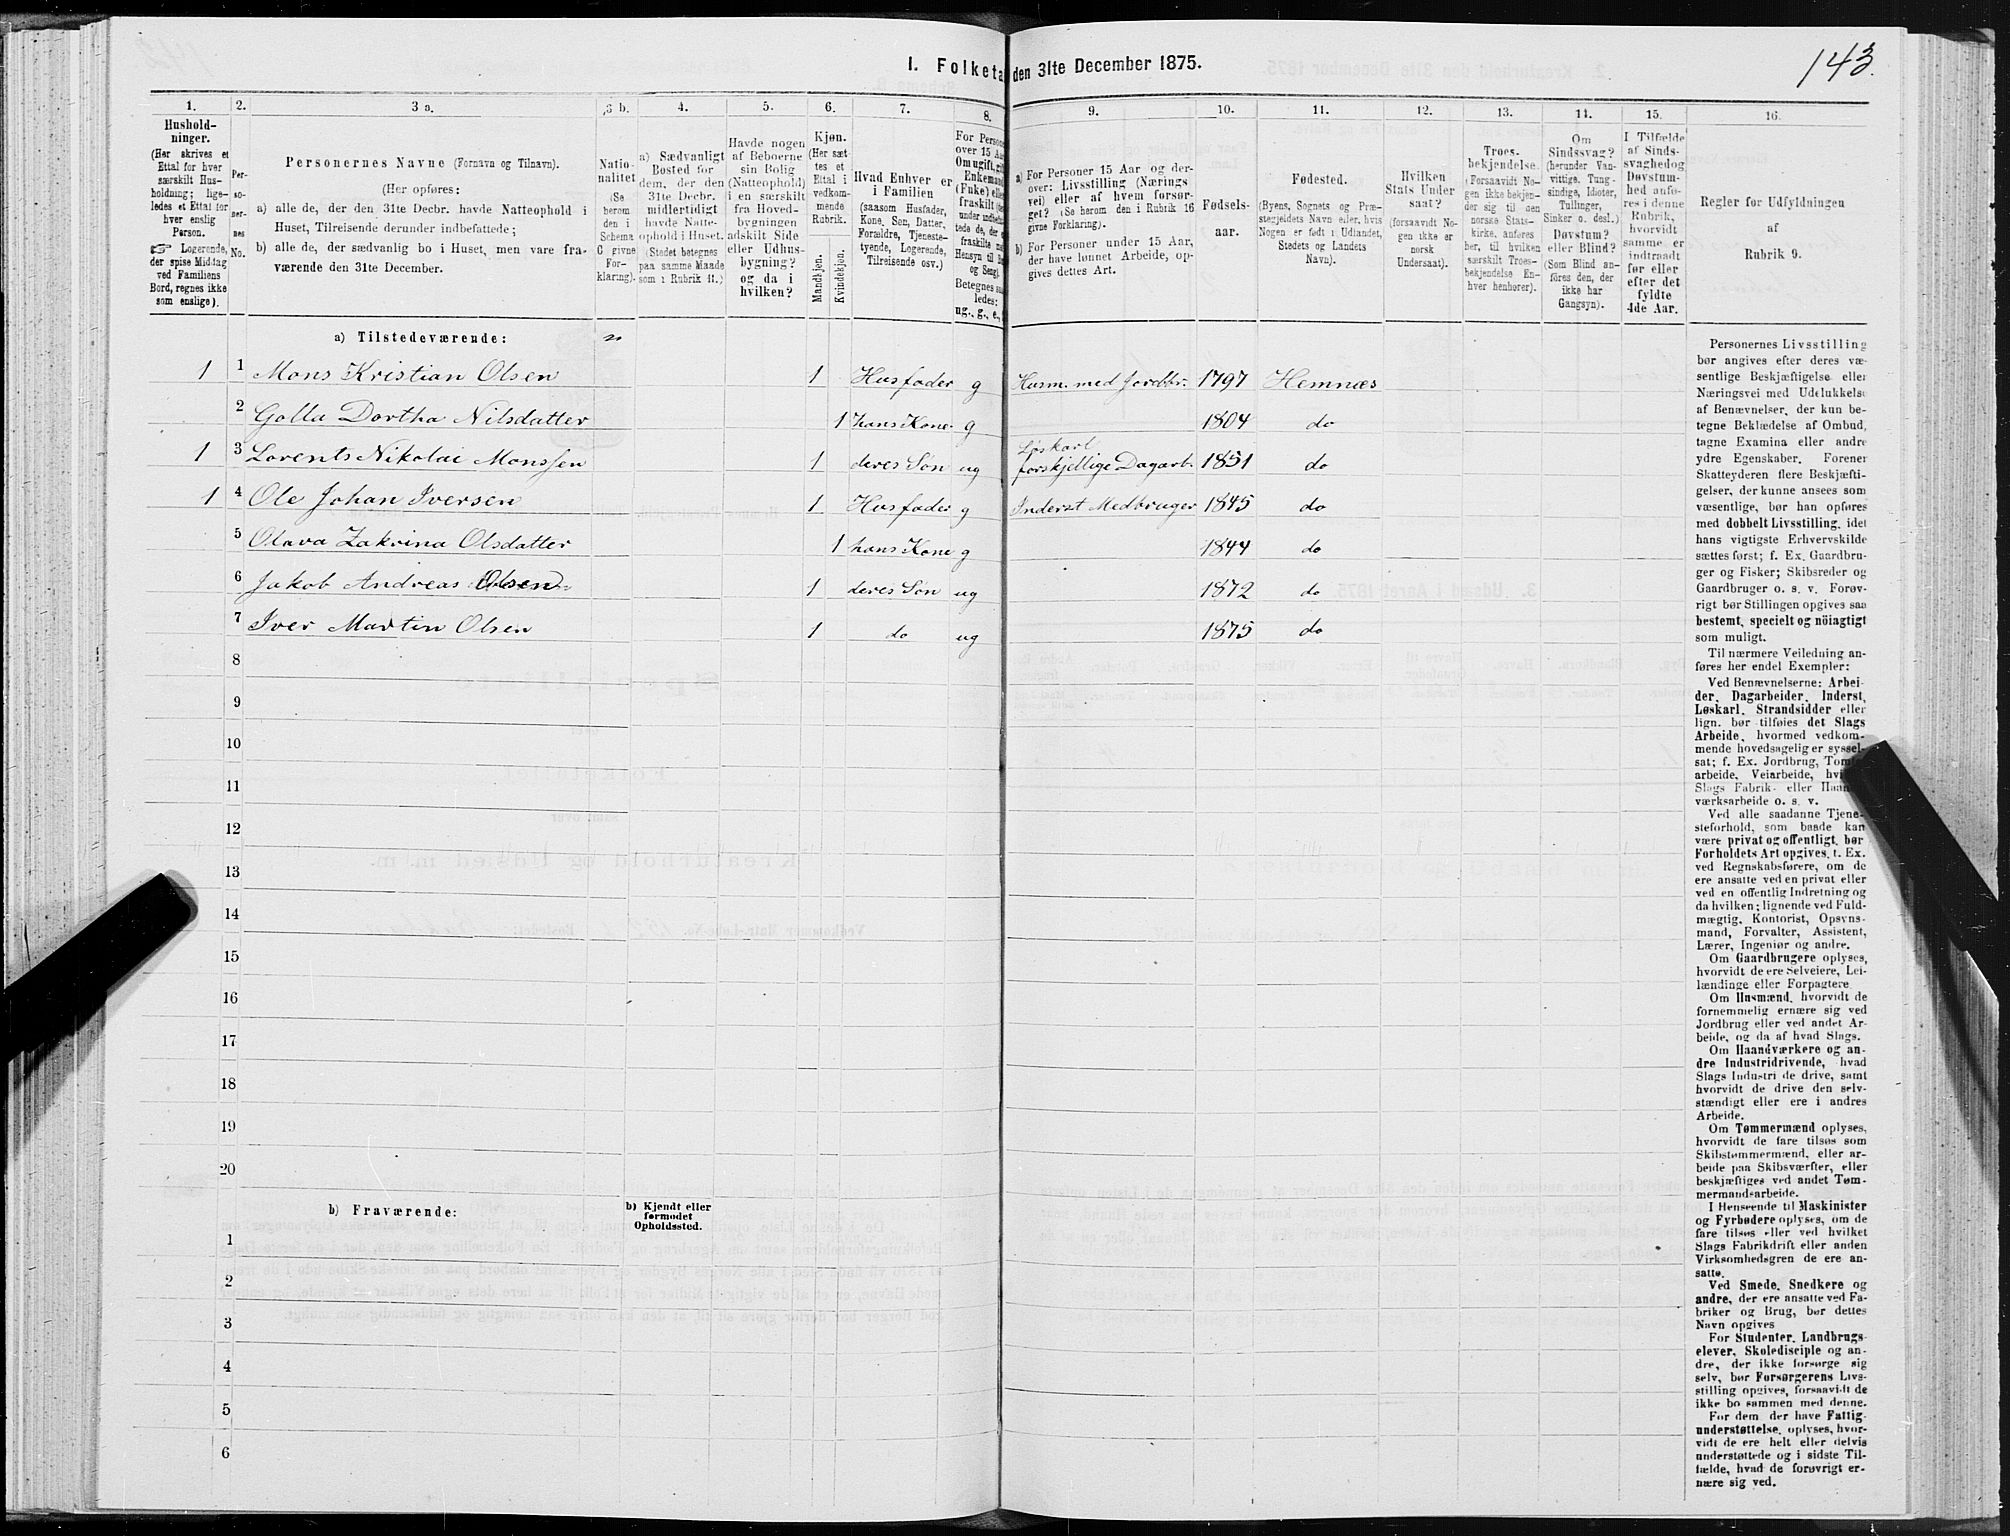 143.
I. Folketa
den 31te December 1875.
1. 2. 3 a. 3 b. 4. 5. 6. 7. 8. 9. 10. 11. 12. 13. 14. 15. 16.
Hushold-
ninger.
(Her skrives et
Ettal for hver
særskilt Hus-
holdning; lige-
ledes et Ettal for
hver enslig
Person.
☞ Logerende,
der spise Middag
ved Familiens
Bord, regnes ikke
som enslige).
Per-
so-
ner-
nes
No.
Personernes Navne (Fornavn og Tilnavn).
(Her opføres:
a) alle de, der den 31te Decbr. havde Natteophold i
Huset, Tilreisende derunder indbefattede;
b) alle de, der sædvanlig bo i Huset, men vare fra-
værende den 31te December.
Natio-
nalitet
(Se
herom
den i
Schema
6 givne
For-
klaring).
a) Sædvanligt
Bosted for
dem, der den
31te Decbr.
midlertidigt
havde Natte-
ophold i Huset.
(Stedet betegnes
paa samme Maade
som i Rubrik 11.)
Havde nogen
af Beboerne
sin Bolig
(Natteophold)
i en særskilt
fra Hoved-
bygningen
adskilt Side
eller Udhus-
bygning?
og da i
hvilken?
Kjøn.
(Her sæt-
tes et
Ettal i
vedkom-
mende
Rubrik.
Mandkjøn.
Kvindekjøn.
Hvad Enhver er
i Familien
(saasom Husfader,
Kone, Søn, Datter,
Forældre, Tjeneste-
tyende, Logerende,
Tilreisende osv.)
For Persone
over 15 Aa
Om ugift, gift
Enkemand
(Enke) elle
fraskilt
Betegnes saa
ledes:
ug., g., e.,
a) For Personer 15 Aar og der-
over: Livsstilling (Nærings
vei) eller af hvem forsør-
get? (Se herom i Rubrik 16
givne Forklaring).
b) For Personer under 15 Aar,
der have lønnet Arbeide, op-
gives dettes Art.
Fødsels-
aar.
Fødested.
(Byens, Sognets og Præ-
stegjeldets Navn eller, hvis
Nogen er født i Udlandet,
Stedets og Landets
Navn).
Hvilken
Stats Under
saat?
(forsaavidt No-
gen ikke er
norsk
Undersaat).
Troes-
bekjendelse.
(Forsaavidt No-
gen ikke bekjen-
der sig til den
norske Stats-
kirke, anføres
her, til hvilken
særskilt Troes-
bekjendelse En-
hver henhører).
Om
Sindssvag?
(herunder Van-
vittige, Tung-
sindige, Idioter,
Tullinger,
Sinker o. desl.)
Døvstum?
eller Blind?
(Som Blind an-
føres den, der
ikke har
Gangsyn).
I Tilfælde
af Sinds-
svaghed og
Døvstum-
hed anfø-
res i denne
Rubrik,
hvorvidt
samme er
indtraadt
før eller
efter det
fyldte
4de Aar.
Regler for Udfyldningen
af
Rubrik 9.
a) Tilstedeværende: n
1 1 Mons Kristian Olsen 1 Husfader g Husm. med Jordbr. 1797 Hemnæs
2 Golla Dortha Nilsdatter 1 hans Kone g 1804 do
Løskarl
1 3 Lorents Nikolai Monssen 1 deres Søn ug forskjellige Dagarb. 1851 do
1 4 Ole Johan Iversen 1 Husfader g Inderst Medbruger 1845 do
5 Olava Zakrina Olsdatter 1 hans Kone g 1844 do
6 Jakob Andreas Olsen 1 deres Søn ug 1872 do
7 Iver Martin Olsen 1 do ug 1875 do
8
9
10
11
12
13
14
15
16
17
18
19
20
b) Fraværende:
b) Kjendt eller
formodet
Opholdssted.
1
2
3
4
5
6
Personernes Livsstilling
bør angives efter deres væ-
sentlige Beskjæftigelse eller
Næringsvei med Udelukkelse
af Benævnelser, der kun be-
tegne Beklædelse af Ombud,
tagne Examina eller andre
ydre Egenskaber. Forener
Skatteyderen flere Beskjæfti-
gelser, der kunne ansees som
væsentlige, bør han opføres
med dobbelt Livsstilling, idet
hans vigtigste Erhvervskilde
sættes først; f. Ex. Gaardbru-
ger og Fisker; Skibsreder og
Gaardbruger o. s. v. Forøv-
rigt bør Stillingen opgives saa
bestemt, specielt og nöiagtigt
som muligt.
Til nærmere Veiledning an-
føres her endel Exempler:
Ved Benævnelserne: Arbei-
der, Dagarbeider, Inderst,
Løskarl, Strandsidder eller
lign. bør tilføies det Slags
Arbeide, hvormed vedkom-
mende hovedsagelig er syssel-
sat; f. Ex. Jordbrug, Tom
arbeide, Veiarbeide, hvi
Slags Fabrik- eller Haan
værksarbeide o. s. v.
Ved alle saadanne Tjene-
steforhold, som baade kan
være privat og offentligt, bør
Forholdets Art opgives, t. Ex.
ved Regnskabsførere, om de
ere ansatte ved en privat eller
ved en offentlig Indretning og
da hvilken; lignende ved Fuld-
mægtig, Kontorist, Opsyns-
mand, Forvalter, Assistent,
Lærer, Ingeniør og andre.
Om Gaardbrugere oplyses,
hvorvidt de ere Selveiere, Lei-
lændinge eller Forpagtere.
Om Husmænd, hvorvidt de
fornemmelig ernære sig ved
Jordbrug eller ved andet Ar-
beide, og da af hvad Slags.
Om Haandværkere og an-
dre Industridrivende, hvad
Slags Industri de drive, samt
hvorvidt de drive den selv-
stændigt eller ere i andres
Arbeide.
Om Tømmermænd oplyses,
hvorvidt de fare tilsøs som
Skibstømmermænd, eller ar-
beide paa Skibsværfter, eller
beskjæftiges ved andet Tøm-
mermandsarbeide.
I Henseende til Maskinister
og Fyrbødere oplyses, om de
fare tilsøs eller ved hvilket
Slags Fabrikdrift eller anden
Virksomhedsgren de ere an-
satte.
Ved Smede, Snedkere og
andre, der ere ansatte ved Fa-
briker og Brug, bør dettes
Navn opgives
For Studenter, Landbrugs-
elever, Skoledisciple og an-
dre, der ikke forsørge sig
selv, bør Forsørgerens Livs-
stilling opgives, forsaavidt de
ikke bo sammen med denne.
For dem, der have Fattig-
understøttelse, oplyses, hvor-
vidt de ere helt eller delvis
understøttede og i sidste Til-
fælde, hvad de forøvrigt er-
nære sig ved.